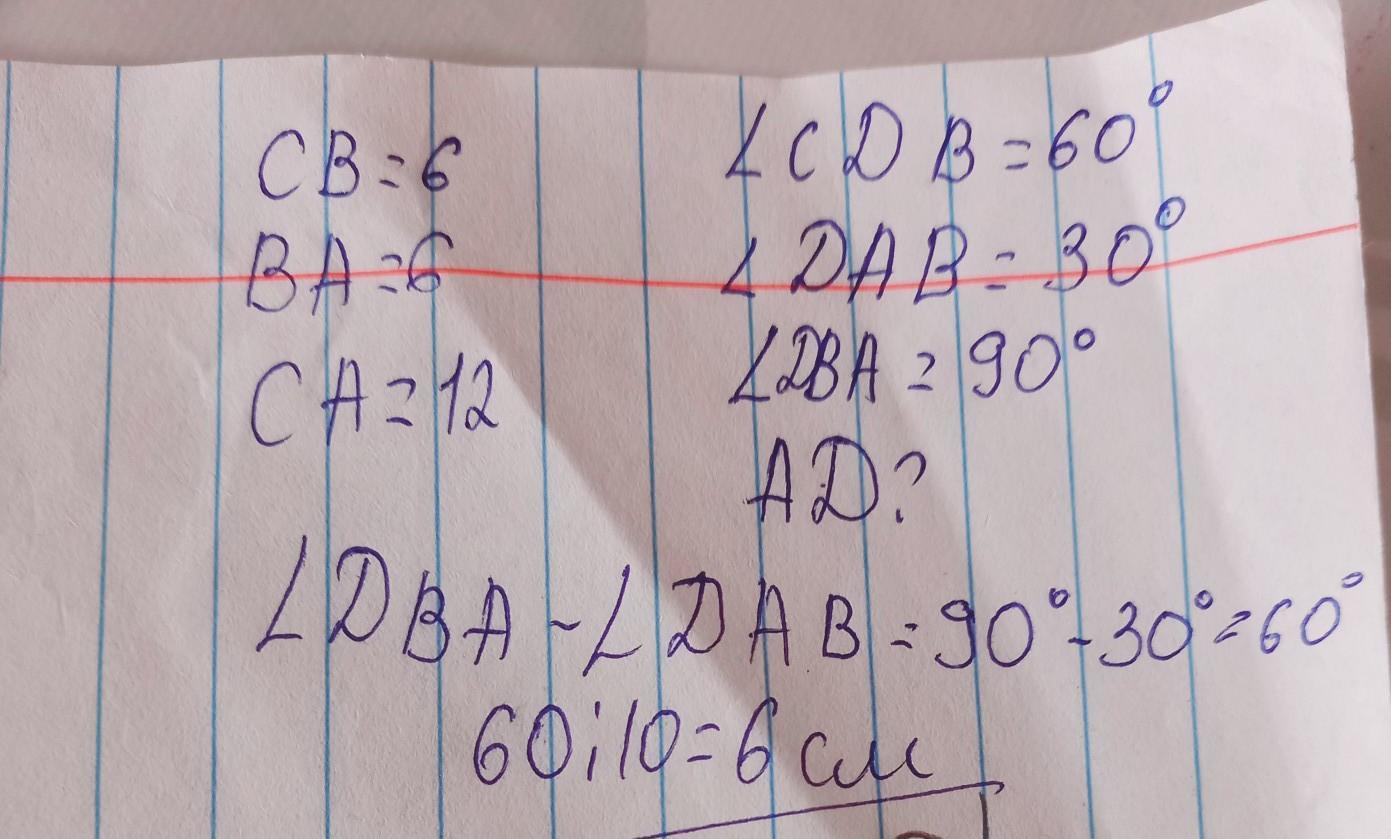 CB=6
BA=6
CA=12
∠CDB=60°
∠DAB=30°
∠DBA=90°
AD?
∠DBA-∠DAB=90°-30°=60°
60:10=6 см